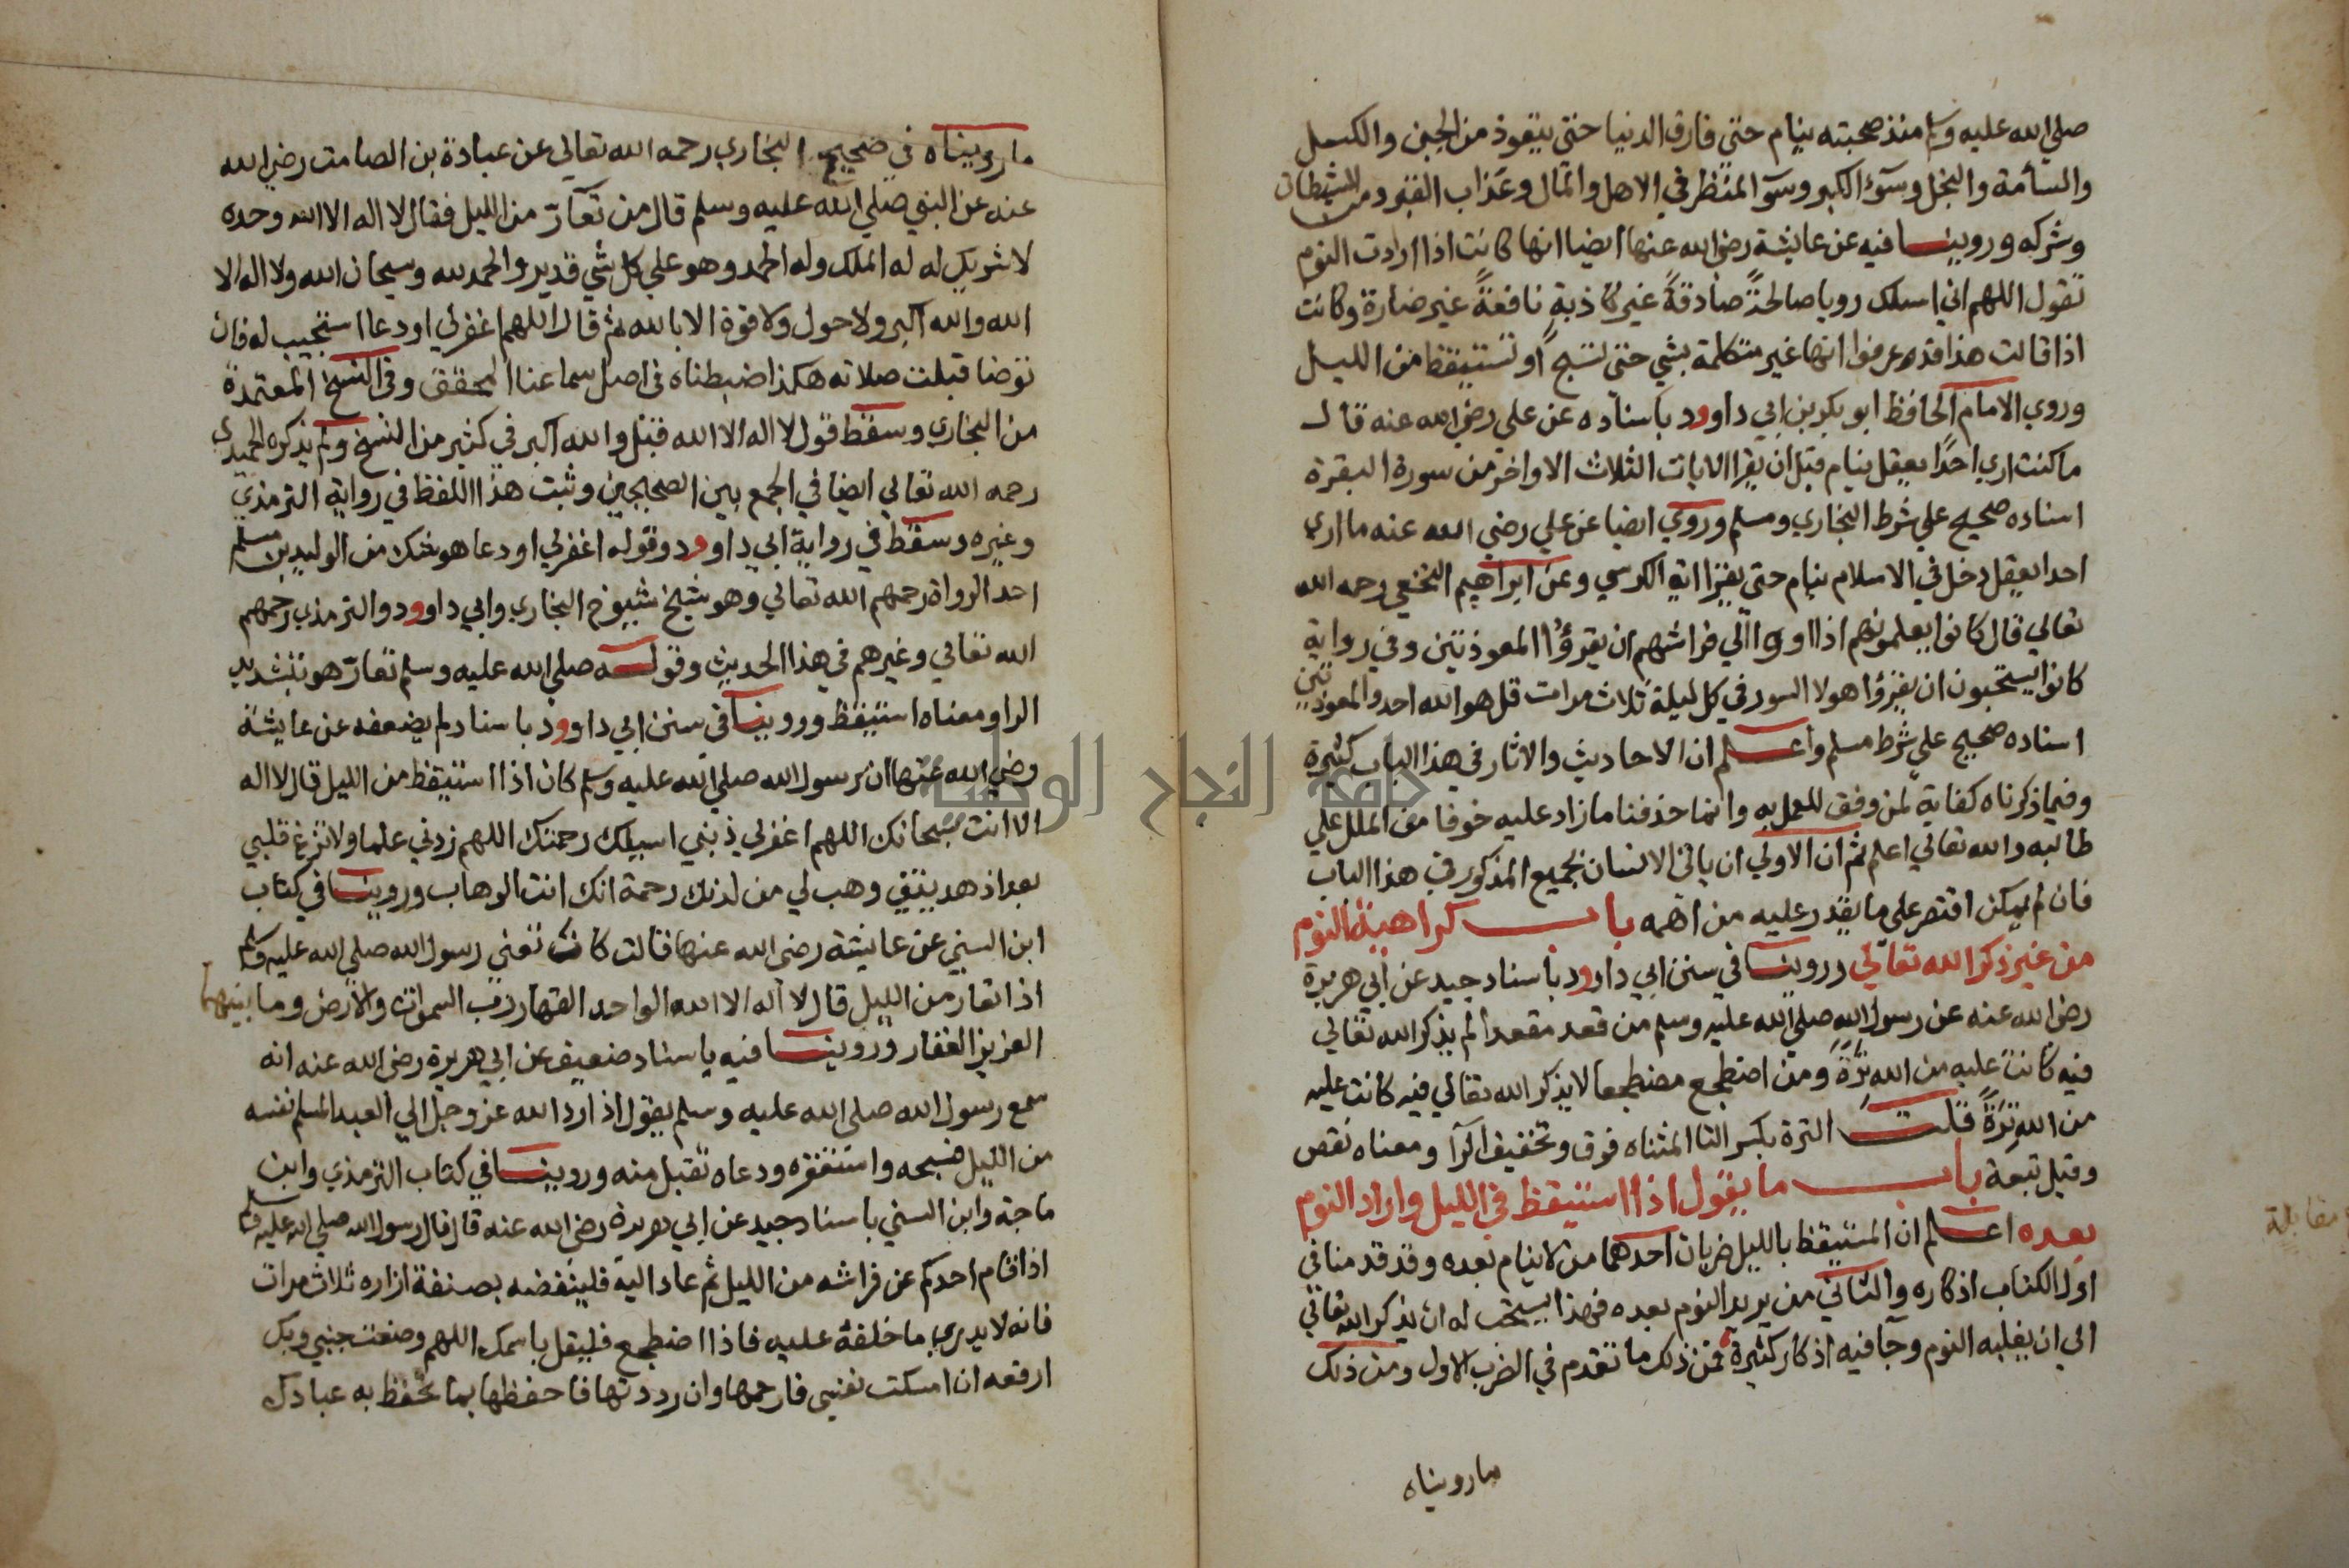 صلي الله عليه وسلم منذ صحبته ينام حتي فارق الدنيا حتي يتعوذ من الجبن والكسل
والسأمة والبخل وسوء الكبر وسوء المنظر في الاهل والمال وعذاب القبر ومن الشيطان
وشركه وروينا فيه عن عايشة رضي الله عنها ايضا انها كانت اذا ارادت النوم
تقول اللهم اني اسلك رويا صالحةً صادقةً غير كاذبةٍ نافعةً غير ضارة وكانت
اذا قالت هذا قد عرفوا انها غير متكلمة بشي حتي تصبح او تستيقظ من الليل
وروي الامام الحافظ ابو بكر بن ابي داوود باسناده عن علي رضي الله عنه قال
ما كنت اري احدًا يعقل ينام قبل ان يقرا الايات الثلاث الاواخر من سورة البقرة
اسناده صحيح علي شرط البخاري ومسلم وروي ايضا عن علي رضي الله عنه ما اري
احدا يعقل دخل في الاسلام ينام حتي يقرا اية الكرسي وعن ابراهيم النخعي رحمه الله
تعالي قال كانوا يعلمونهم اذا اووا الي فراشهم ان يقرؤا المعوذتين وفي رواية
كانوا يستحبون ان يقرؤا هولا السور في كل ليلة ثلاث مرات قل هو الله احد والمعوذتين
اسناده صحيح علي شرط مسلم واعلم ان الاحاديث والاثار في هذا الباب كثيرة
وفيما ذكرناه كفاية لمن وفق للعمل به وانما حذفنا ما زاد عليه خوفا من الملل علي
طالبه والله تعالي اعلم ثم ان الاولي ان ياتي الانسان بجميع المذكور في هذا الباب
فان لم يمكن اقتصر علي ما يقدر عليه من اهمه باب كراهية النوم
من غير ذكر الله تعالي وروينا في سنن ابي داوود باسناد جيد عن ابي هريرة
رضي الله عنه عن رسول الله صلي الله عليه وسلم من قعد مقعدا لم يذكر الله تعالي
فيه كانت عليه من الله ترةً ومن اضطجع مضطجعا لا يذكر الله تعالي فيه كانت عليه
من الله ترةً قلت الترة بكسر التا المثناه فوق وتخفيف الرا ومعناه نقص
وقيل تبعة باب ما يقول اذا استيقظ في الليل واراد النوم
بعده اعلم ان المستيقظ بالليل ضربان احدهما من لا ينام بعده وقد قدمنا في
اول الكتاب اذكاره والثاني من يريد النوم بعده فهذا يستحب له ان يذكر الله تعالي
الي ان يغلبه النوم وجا فيه اذكار كثيرة فمن ذلك ما تقدم في الضرب الاول ومن ذلك
ما رويناه
مقابلة
ما رويناه في صحيح البخاري رحمه الله تعالي عن عبادة بن الصامت رضي الله
عنه عن النبي صلي الله عليه وسلم قال من تعارّ من الليل فقال لا اله الا الله وحده
لا شريك له له الملك وله الحمد وهو علي كل شي قدير والحمد لله وسبحان الله ولا اله الا
الله والله اكبر ولا حول ولا قوة الا بالله ثم قال اللهم اغفر لي او دعا استجيب له فان
توضا قبلت صلاته هكذا ضبطناه في اصل سماعنا المحقق وفي النسخ المعتمدة
من البخاري وسقط قول لا اله الا الله قبل والله اكبر في كثير من النسخ ولم يذكره الحميدي
رحمه الله تعالي ايضا في الجمع بين الصحيحين وثبت هذا اللفظ في رواية الترمذي
وغيره وسقط في رواية ابي داوود وقوله اغفر لي او دعا هو شك من الوليد بن مسلم
احد الرواة رحمهم الله تعالي وهو شيخ شيوخ البخاري وابي داوود والترمذي رحمهم
الله تعالي وغيرهم في هذا الحديث وقوله صلي الله عليه وسلم تعارّ هو بتشديد
الرا ومعناه استيقظ وروينا في سنن ابي داوود باسناد لم يضعفه عن عايشة
رضي الله عنها ان رسول الله صلي الله عليه وسلم كان اذا استيقظ من الليل قال لا اله
الا انت سبحانك اللهم اغفر لي ذنبي اسيلك رحمتك اللهم زدني علما ولا تزغ قلبي
بعد اذ هديتني وهب لي من لدنك رحمة انك انت الوهاب وروينا في كتاب
ابن السني عن عايشة رضي الله عنها قالت كان تعني رسول الله صلي الله عليه وسلم
اذا تعار من الليل قال لا اله الا الله الواحد القهار رب السموات والارض وما بينهما
العزيز الغفار وروينا فيه باسناد ضعيف عن ابي هريرة رضي الله عنه انه
سمع رسول الله صلي الله عليه وسلم يقول اذا رد الله عز وجل الي العبد المسلم نفسه
من الليل فسبحه واستغفره ودعاه تقبل منه وروينا في كتاب الترمذي وابن
ماجة وابن السني باسناد جيد عن ابي هريرة رضي الله عنه قال قال رسول الله صلي الله عليه وسلم
اذا قام احدكم عن فراشه من الليل ثم عاد اليه فلينفضه بصنفة ازاره ثلاث مرات
فانه لا يدري ما خلفه عليه فاذا اضطجع فليقل باسمك اللهم وضعت جنبي وبك
ارفعه ان امسكت نفسي فارحمها وان رددتها فاحفظها بما تحفظ به عبادك
جامعة النجاح الوطنية